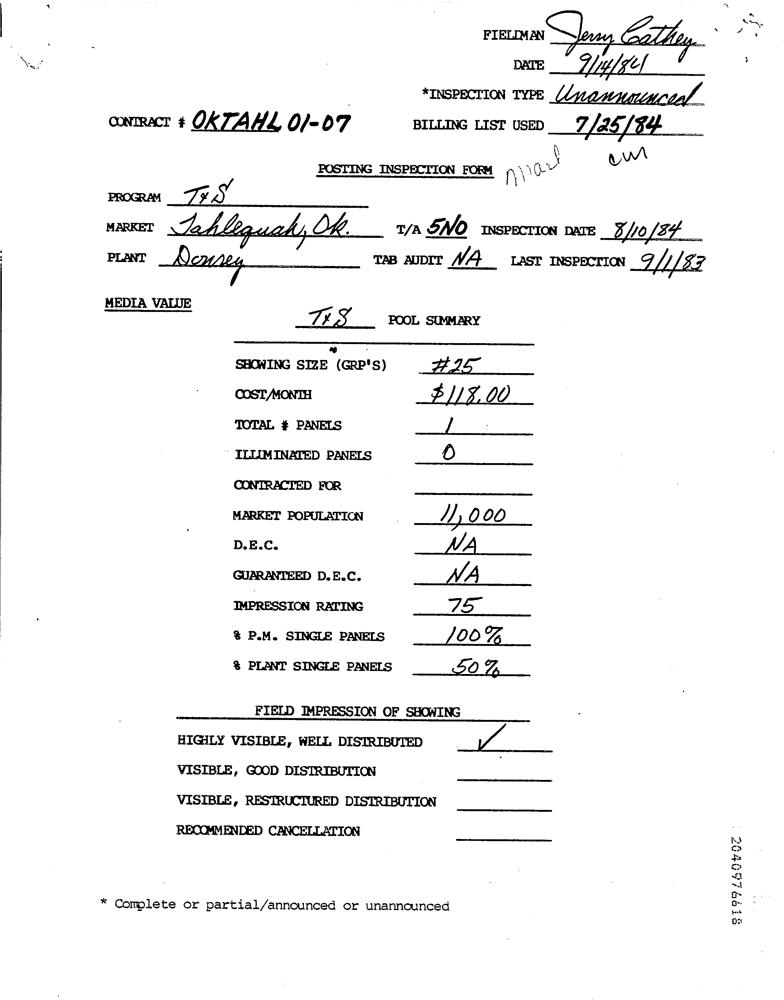 FIELDMAN Jerry Cathey
DATE 9/14/84
*INSPECTION TYPE Unannounced
CONTRACT # OKTAHL 01-07 BILLING LIST USED 7/25/84
POSTING INSPECTION FORM
PROGRAM T&S
MARKET Tahlequah, Ok. T/A 5NO INSPECTION DATE 8/10/84
PLANT Donrey TAB AUDIT NA LAST INSPECTION 9/1/83
MEDIA VALUE
T&S POOL SUMMARY
SHOWING SIZE (GRP'S) #25
COST/MONTH $118.00
TOTAL # PANELS 1
ILLUMINATED PANELS 0
CONTRACTED FOR
MARKET POPULATION 11,000
D.E.C. NA
GUARANTEED D.E.C. NA
IMPRESSION RATING 75
% P.M. SINGLE PANELS 100%
% PLANT SINGLE PANELS 50%
FIELD IMPRESSION OF SHOWING
HIGHLY VISIBLE, WELL DISTRIBUTED ✓
VISIBLE, GOOD DISTRIBUTION
VISIBLE, RESTRUCTURED DISTRIBUTION
RECOMMENDED CANCELLATION
* Complete or partial/announced or unannounced
2040976618